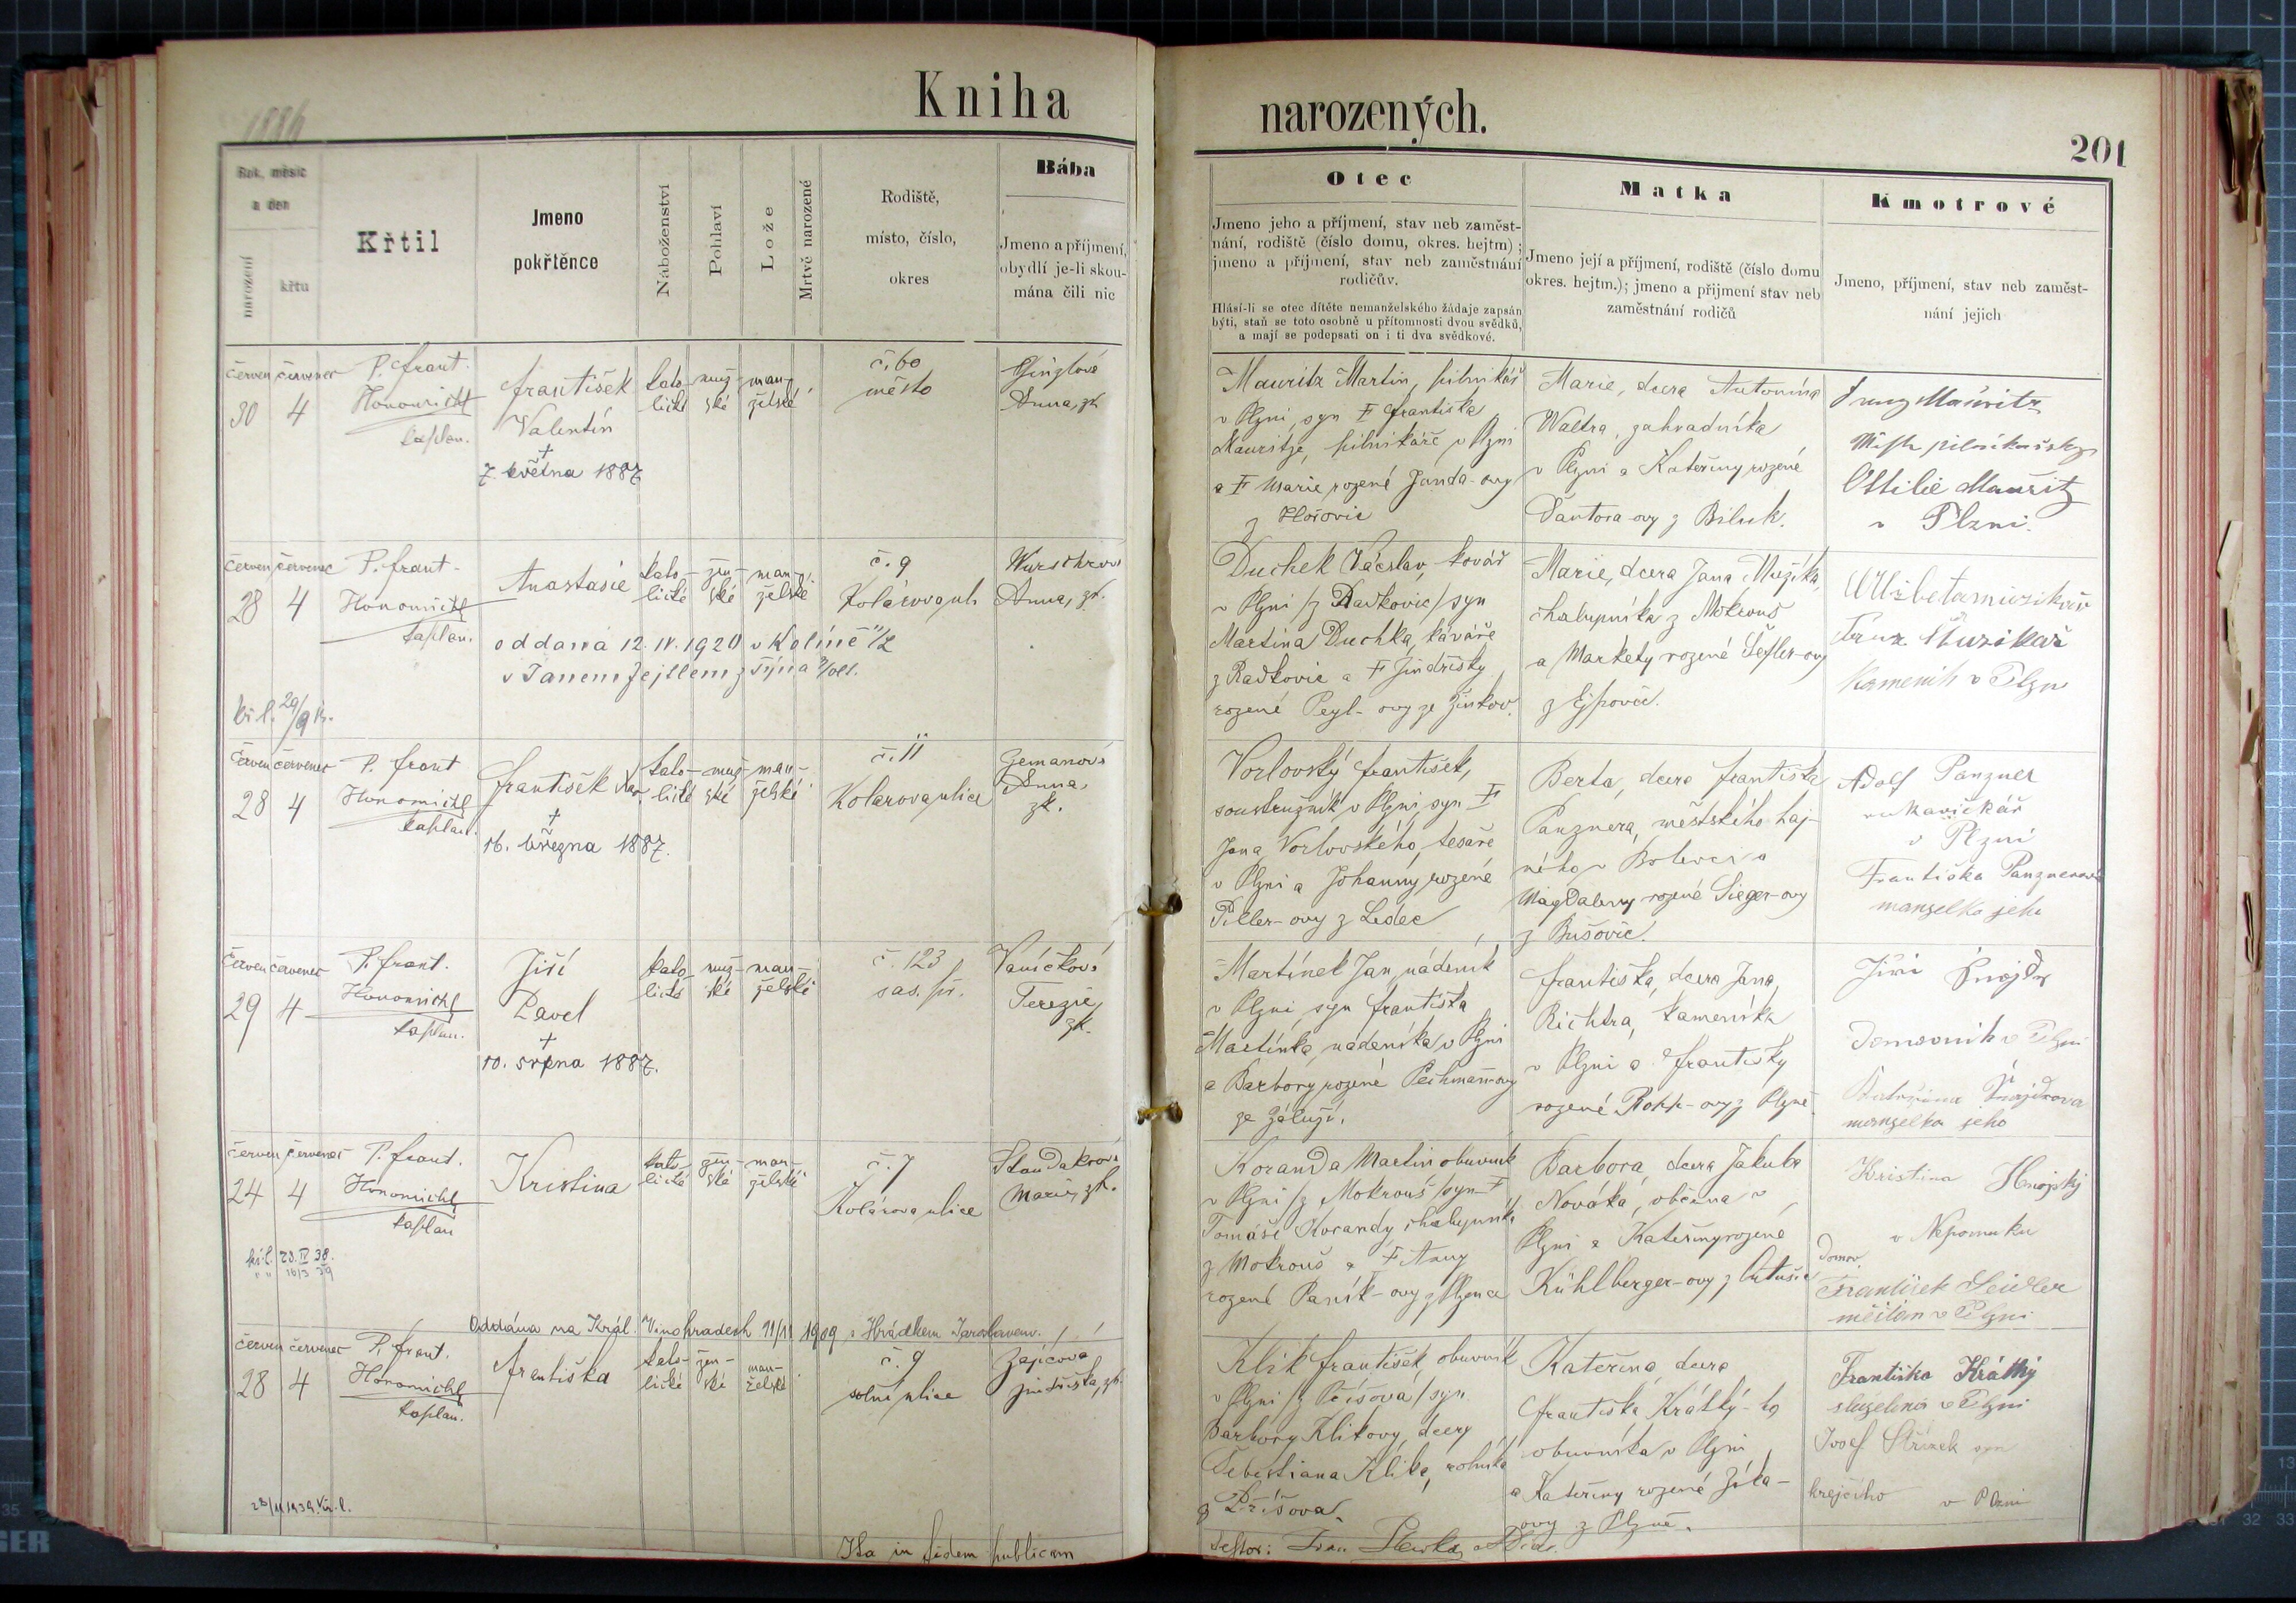 Kniha
1886
Rok, měsíc
a den
narození
křtu
Křtil
Jmeno
pokřtěnce
Náboženství
Pohlaví
Lože
Mrtvě narozené
Rodiště,
místo, číslo,
okres
Bába
Jmeno a příjmení,
obydlí je-li skou-
mána čili nic
červen červenec P. Frant. František kato- muž- man- č. 60
30 4 Honomichl Valentin lické ské želské město Anna, zk.
kaplan.
†
7. května 1887
červen červenec P. Frant. Anastasie kato- žen- man- č. 9
28 4 Honomichl lické ské želské Kolárova ul. Anna, zk.
kaplan.
oddaná 12. IV. 1920 v Kolíně
s Janem Zejtlem z
kř. l. 29/9
červen červenec P. Frant František kato- muž- man- č. 11 Zemanová
28 4 Honomichl lické ské želské Kolarova ulice Anna,
kaplan. zk.
†
16. března 1887.
červen červenec P. Frant. Jiří kato- muž- man- č. 123 Vaníčková
29 4 Honomichl Pavel lické ské želské sas. př. Terezie,
kaplan. zk.
†
10. srpna 1887.
červen červenec P. Frant. Kristina kato- žen- man- č. 7
24 4 Honomichl lické ské želské Kolárova ulice Marie, zk.
kaplan
kř. l. 23. IV 38.
" " 16/3 39
Oddána na Král. Vinohradech 11/11 1909 s Hrádkem Jaroslavem.
červen červenec P. Frant. Františka kato- žen- man- č. 9 Zajícová
28 4 Honomichl lické ské želské solní ulice Jindřiška, zk.
kaplan.
28/11 1939. kř. l.
Ita in fidem publicam
narozených.
201
Otec
Jmeno jeho a příjmení, stav neb zaměst-
nání, rodiště (číslo domu, okres. hejtm) ;
jmeno a příjmení, stav neb zaměstnání
rodičův.
Hlásí-li se otec dítěte nemanželského žádaje zapsán
býti, staň se toto osobně u přítomnosti dvou svědků,
a mají se podepsati on i ti dva svědkové.
Matka
Jmeno její a příjmení, rodiště (číslo domu
okres. hejtm.); jmeno a příjmení stav neb
zaměstnání rodičů
Kmotrové
Jmeno, příjmení, stav neb zaměst-
nání jejich
Mauritz Martin, pilnikář
v Plzni, syn † Františka
Mauritze, pilnikáře v Plzni
a † Marie rozené Janda-ovy
z Hořovic
Marie, dcera Antonína
Waltra, zahradníka
v Plzni a Kateřiny rozené
Šantora-ovy z Biluk.
Franz Mauritz
Ottilie Mauritz
v Plzni.
Duchek Václav, kovář
v Plzni /z Radkovic/ syn
Martina Duchka, kováře
z Radkovic a † Jindřišky
rozené Pegl-ovy ze Žinkov.
Marie, dcera Jana Mužíka,
chalupníka z Mokrouš
a Markéty rozené Šefler-ovy
z Ejpovic.
Kameník v Plzni
Vorlovský František,
soustružník v Plzni, syn †
Jana Vorlovského, tesaře
v Plzni a Johanny rozené
Piller-ovy z Ledec
Berta, dcera Františka
Panznera, městského haj-
ného v Bolevci a
Magdaleny rozené Sieger-ovy
z Bušovic.
Adolf Panzner
rukavičkář
v Plzni
Františka Panznerová
manželka jeho
Martínek Jan, nádeník
v Plzni, syn Františka
Martínka, nádeníka v Plzni
a Barbory rozené Pechmann-ovy
ze Záluží.
Františka, dcera Jana
Richtra, kameníka
v Plzni a Františky
rozené Rokk-ovy z Plzně
Jiří Šnajdr
Domovník v Plzni
Kateřina Šnajdrova
manželka jeho
Koranda Martin obuvník
v Plzni /z Mokrouš/ syn †
Tomáše Korandy, chalupníka
z Mokrouš a † Anny
rozené Paník-ovy z Plzence
Barbora, dcera Jakuba
Nováka, občana v
Plzni a Kateřiny rozené
Kühlberger-ovy z Litušic
Kristina Hnojský
v Nepomuku
Domov.
František Seidler
měšťan v Plzni
Klik František, obuvník
v Plzni /z Příšova/ syn
Barbory Klikovy, dcery
Šebestiana Klika, rolníka
z Příšova.
Kateřina, dcera
Františka Krátký-ho
obuvníka v Plzni
a Kateřiny rozené Zíka-
ovy z Plzně.
Františka Krátký
služebná v Plzni
Josef Střízek syn
krejčího v Plzni
Testor: